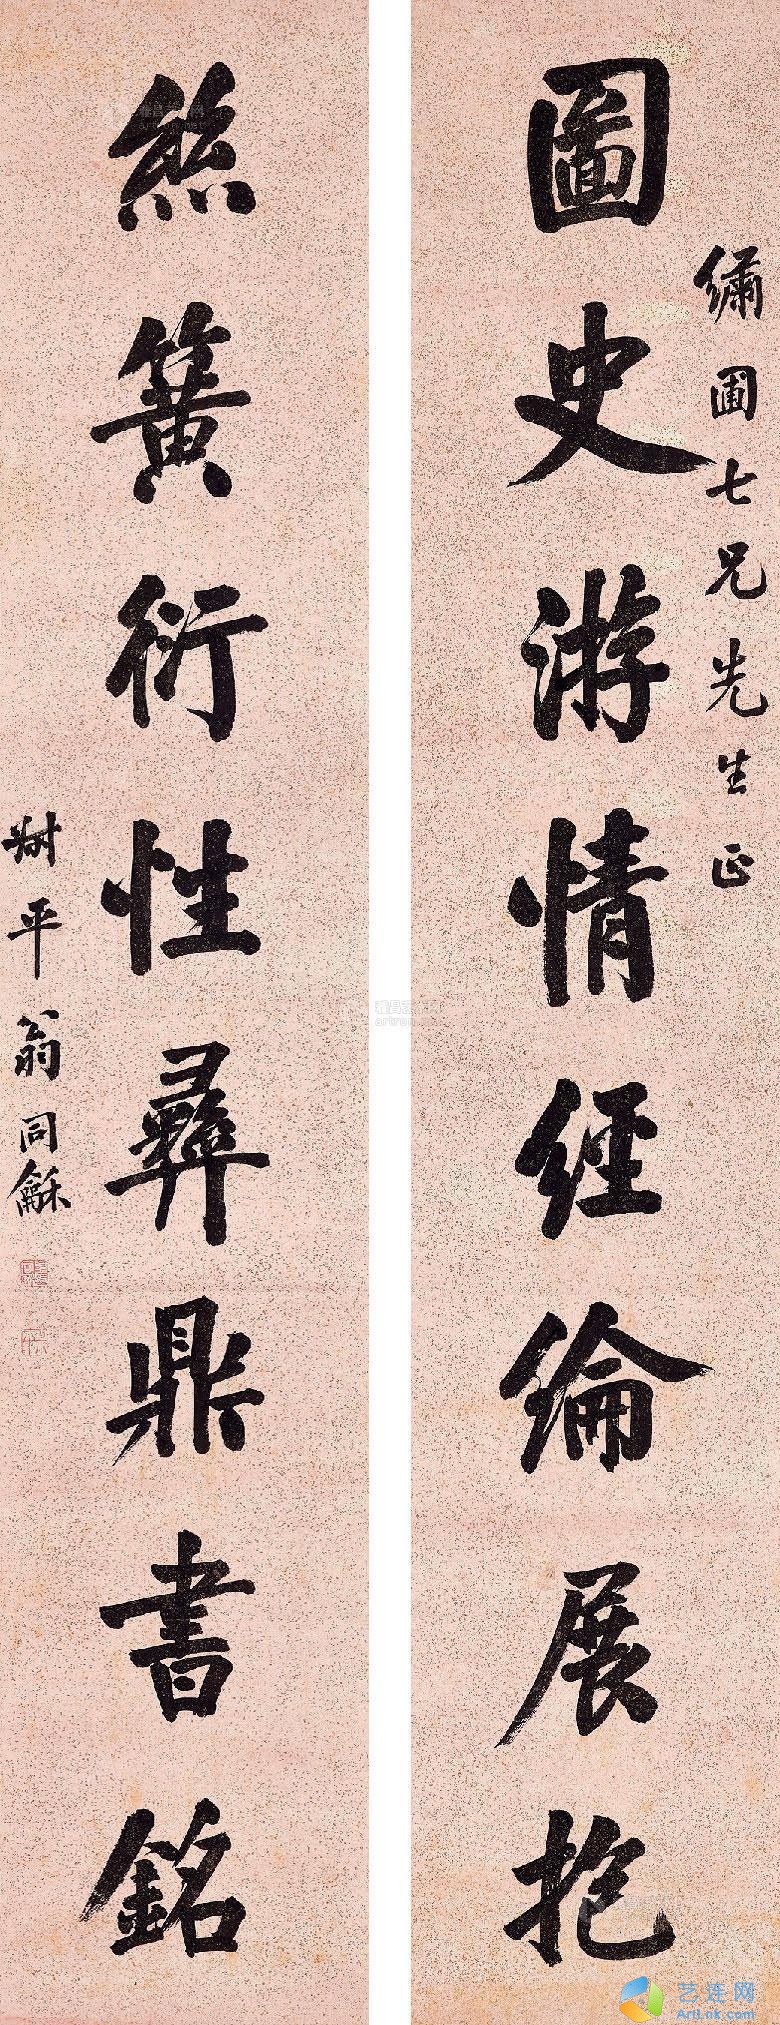 繡圃七兄先生正
圖史游情經綸展抱
絲簧衍性彝鼎書銘
叔平翁同龢
艺连网
ArtLnk.com